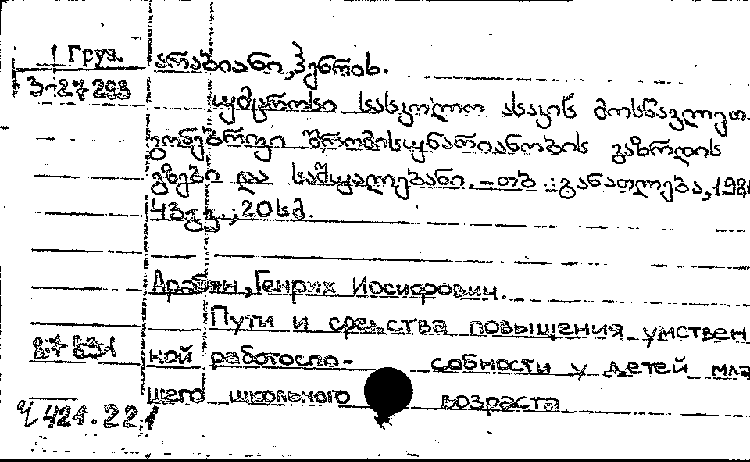 Груз. არაბიანი, ჰენრიხ.
უმცროსი სასკოლო ასაკის მოსწავლეთა
გონებრივი შრომისუნარიანობის გაზრდის
გზები და საშუალებანი. — თბ.: განათლება, 198
43 გვ.; 20 სმ.
Арабян, Генрих Иосифович.
Пути и средства повышения умствен
ной работоспо- собности у детей мла
шего школьного возраста
Ч 421.221